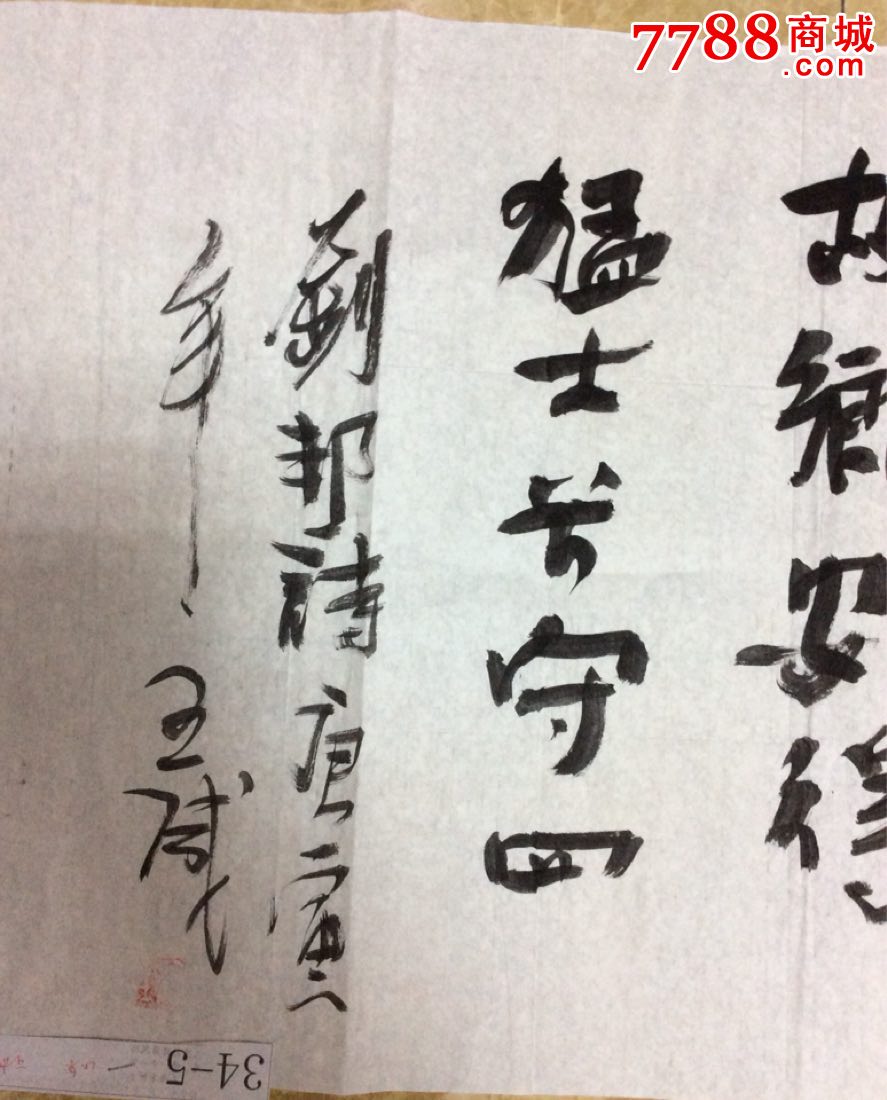 7788商城
.com
故鄉安得
猛士兮守四
劉邦詩庚寅
年王
34-5